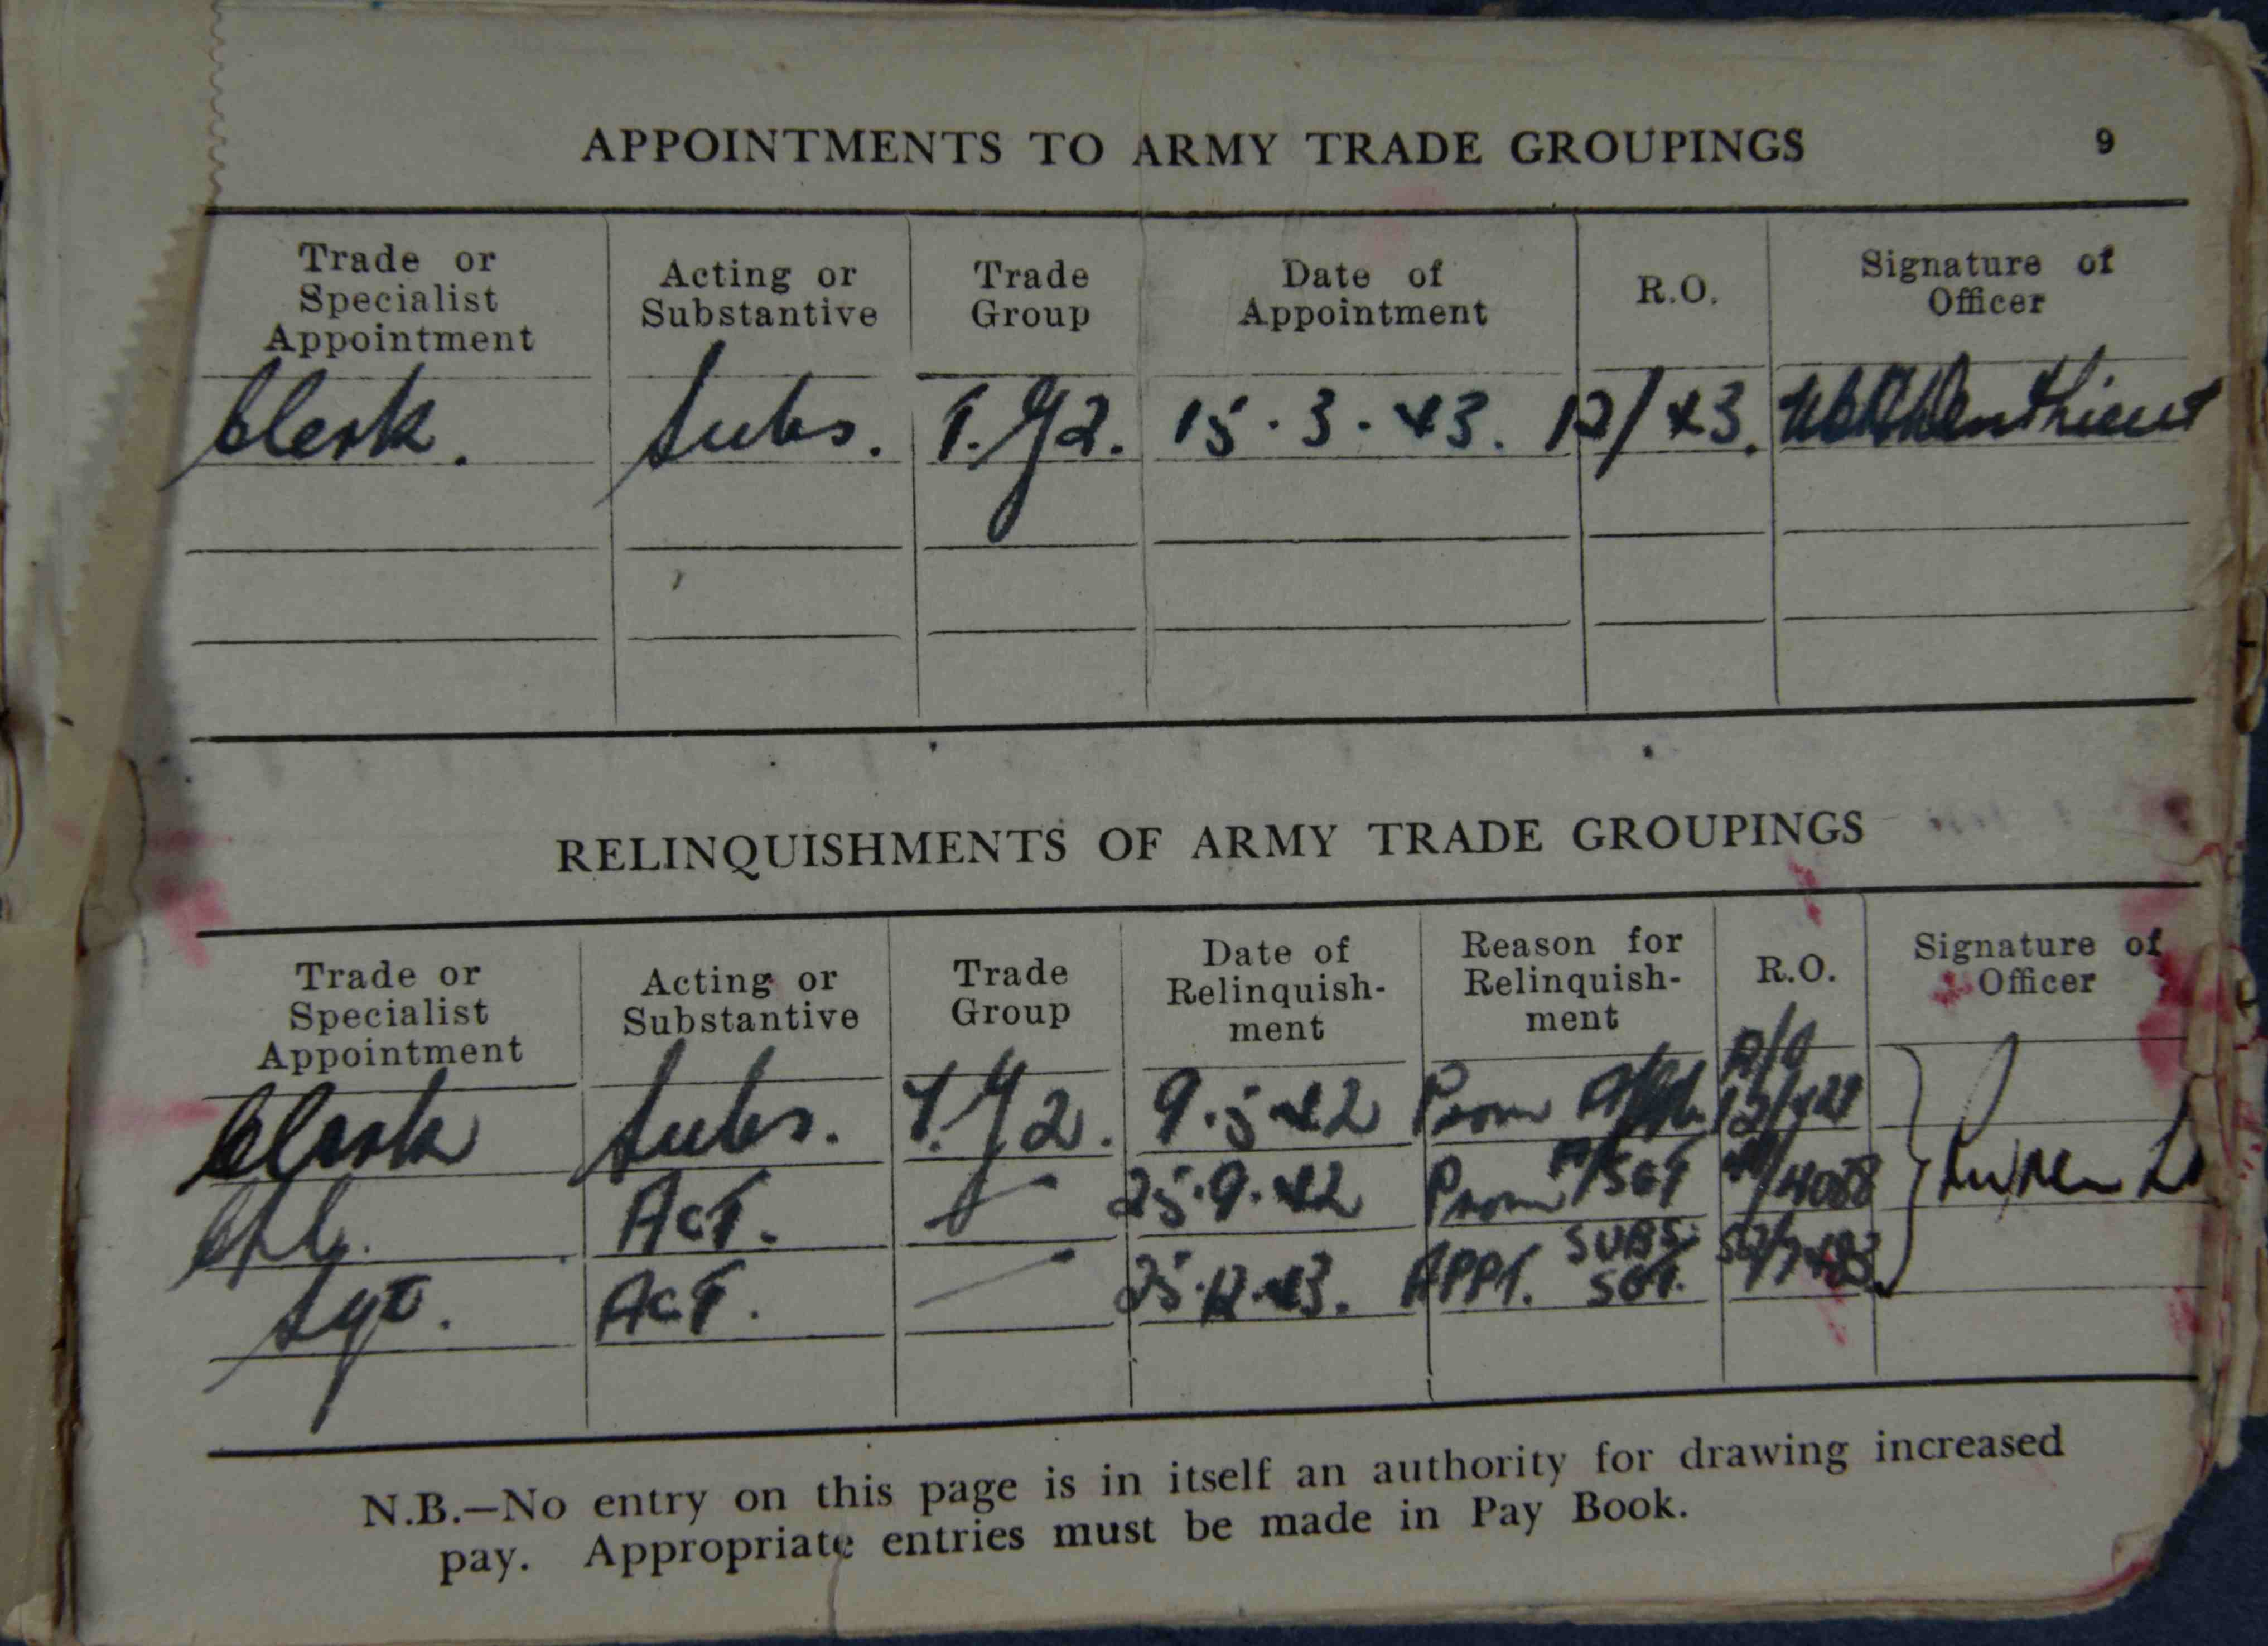 APPOINTMENTS TO ARMY TRADE GROUPINGS 9
Trade or Specialist Appointment | Acting or Substantive | Trade Group | Date of Appointment | R.O. | Signature of Officer
Clerk. | Subs. | T.G2. | 15.3.43. | 12/43.
RELINQUISHMENTS OF ARMY TRADE GROUPINGS
Trade or Specialist Appointment | Acting or Substantive | Trade Group | Date of Relinquish-ment | Reason for Relinquish-ment | R.O. | Signature of Officer
Clerk | Subs. | T.G2. | 9.5.42 | Prom
Cpl. | Act. | 25.9.42 | Prom A/SGT
Sgt. | Act. | 25.12.43. | APPT. SUBS. SGT.
N.B.—No entry on this page is in itself an authority for drawing increased
pay. Appropriate entries must be made in Pay Book.